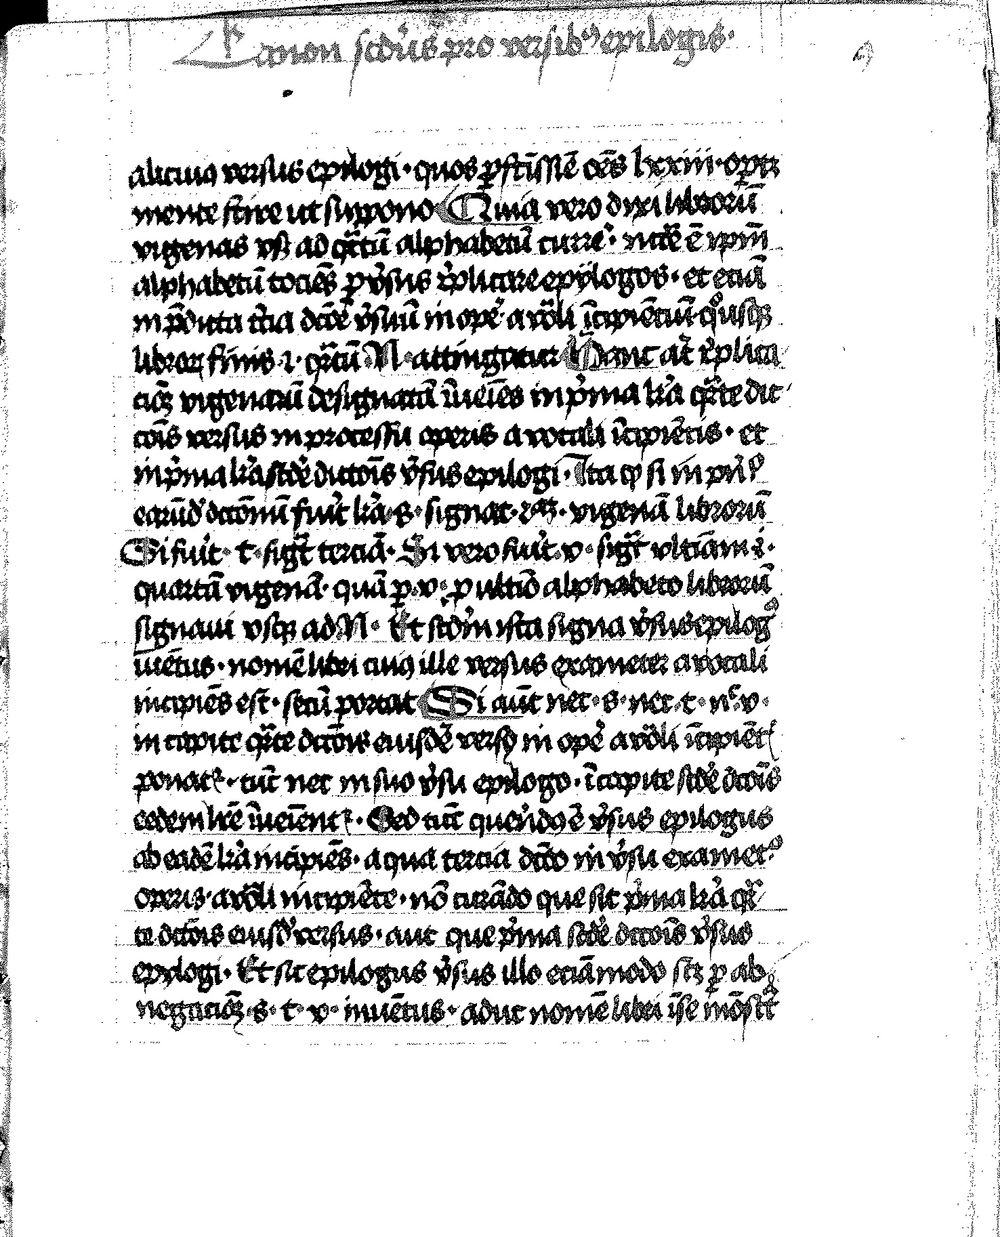 Canon scd'us pro versib9 epilogis·
alicui9 versus epilogi · quos p̱ſtīssīē oēs lxxiiii · oportet
mente scire ut suppono Quia vero dixi librorū
vigenas vsq̄ ad q̄rtū alphabetū curre' · nctē ē ip̄m
alphabetū tociēs p̱ v'sus r̄plicare epylogos · et eciā
in p̄dicta t'cia dcōe v'suū in ope' a vōli īcipiētiū quousq̄
libror̄ finis ·i· q̄rtū ·N· attingatur Hanc at' r̄plica
cōꝫ vigenariū designatā īveies in p'ma lr̄a q̄rte dic
cōis versus in processu operis a vocali īcipiētis · et
in p'ma lr̄a scd'e dictōis v'sus epilogi · Ita ꝙ si in
earūd' dctōnū fuīt lr̄a ·s· signat · 2am · vigenā librorū
Si fuīt · t · sig̅t terciā · Si vero fuīt · v · sig̅t vltiām ·i·
quartā vigenā · quā p̱ ·v· p̱ ultīo alphabeto librorū
signaui vsq̄ ad N · Et scd'm ista signa v'sus epilog9
iuētus · nomē libri cui9 ille versus exameter a vocali
incipiēs est · secū portat Si aūt nec · s · nec · t · nc v ·
in capite q̄rte dctōis eiusdē vers9 in ope' a vōli īcipiēt
ponat' · tūc nec in suo v'su epilogo · ī capite scd'e dctōis
eedem lr̄e īveient' · Sed tūc querēdq ē v'sus epilogus
ab eadē lr̄a incipiēs · a qua tercia dctō in v'su examet'o
operis · a vōli incipiēte · nō curādo que sit p'ma lr̄a q̄r
te dctōis eiusd' versus · aut que p'ma scd'e dctōis v'sus
epylogi · Et sic epilogus v'sus illo eciā modo scꝫ p̱ ab
negacōꝫ · s · t · v · inuētus · aduc nomē libri ī se mōstrat